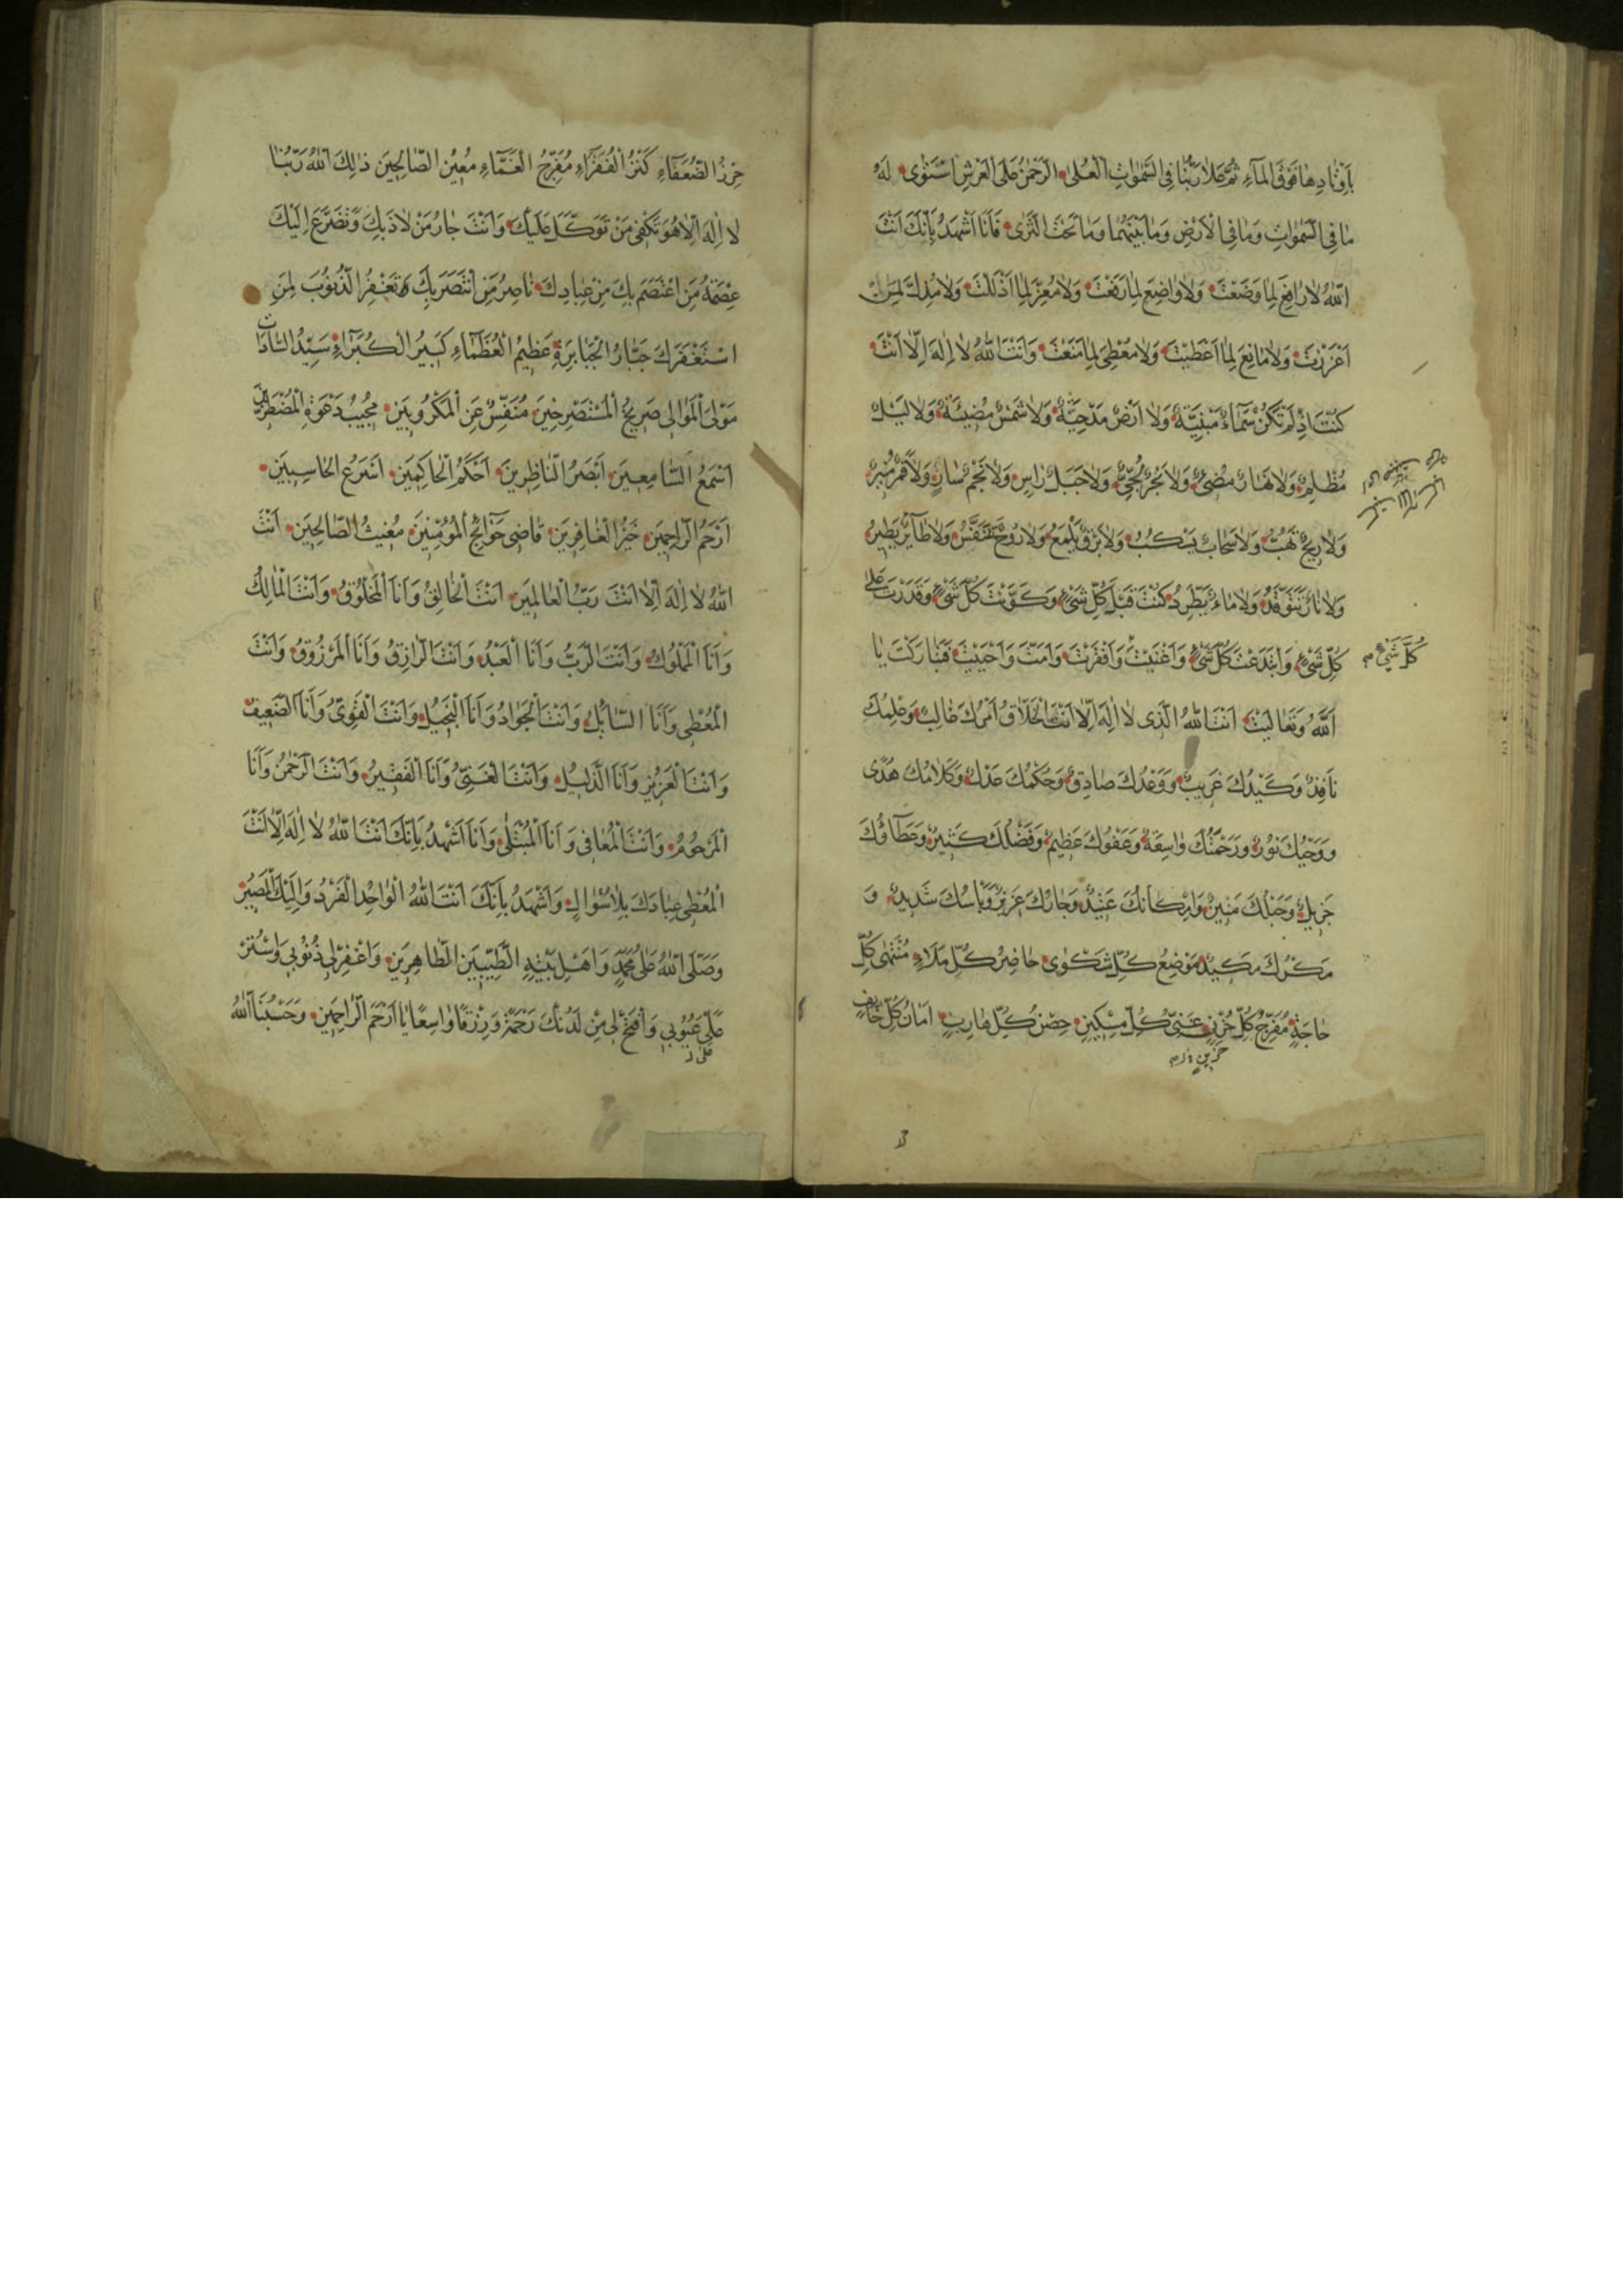 بِاَوْتٰادِهٰا فَوْقَ الْمٰآءِ ثُمَّ عَلٰا رَبُّنٰا فِى السَّمٰوٰاتِ الْعُلٰى الرَّحْمٰنُ عَلَى الْعَرْشِ اسْتَوٰى لَهُ
مٰا فِى السَّمٰوٰاتِ وَمٰا فِى الْاَرْضِ وَمٰا بَيْنَهُمٰا وَمٰا تَحْتَ الثَّرٰى فَاَنَا اَشْهَدُ بِاَنَّكَ اَنْتَ
اللّٰهُ لٰا رٰافِعَ لِمٰا وَضَعْتَ وَلٰا وٰاضِعَ لِمٰا رَفَعْتَ وَلٰا مُعِزَّ لِمٰا اَذْلَلْتَ وَلٰا مُذِلَّ لِمَنْ
اَعْزَزْتَ وَلٰا مٰانِعَ لِمٰا اَعْطَيْتَ وَلٰا مُعْطِىَ لِمٰا مَنَعْتَ وَاَنْتَ اللّٰهُ لٰا اِلٰهَ اِلّٰا اَنْتَ
كُنْتَ اِذْ لَمْ تَكُنْ سَمٰآءٌ مَبْنِيَّةٌ وَلٰا اَرْضٌ مَدْحِيَّةٌ وَلٰا شَمْسٌ مُضِيئَةٌ وَلٰا لَيْلٌ
مُظْلِمٌ وَلٰا نَهٰارٌ مُضِىءٌ وَلٰا بَحْرٌ لُجِّىٌّ وَلٰا جَبَلٌ رٰاسٍ وَلٰا نَجْمٌ سٰارٍ وَلٰا قَمَرٌ مُنِيرٌ
وَلٰا رِيحٌ تَهُبُّ وَلٰا سَحٰابٌ يَسْكُبُ وَلٰا بَرْقٌ يَلْمَعُ وَلٰا رُوحٌ تَتَنَفَّسُ وَلٰا طٰآئِرٌ يَطِيرُ
وَلٰا نٰارٌ تَتَوَقَّدُ وَلٰا مٰاءٌ يَطَّرِدُ كُنْتَ قَبْلَ كُلِّ شَىْءٍ وَكَوَّنْتَ كُلَّ شَىْءٍ وَقَدَرْتَ عَلٰى
كُلِّ شَىْءٍ وَابْتَدَعْتَ كُلَّ شَىْءٍ وَاَغْنَيْتَ وَاَفْقَرْتَ وَاَمَتَّ وَاَحْيَيْتَ فَتَبٰارَكْتَ يٰا
كُلَّ شَىْءٍ م
اَللّٰهُ وَتَعٰالَيْتَ اَنْتَ اللّٰهُ الَّذِى لٰا اِلٰهَ اِلّٰا اَنْتَ الْخَلّٰاقُ اَمْرُكَ غٰالِبٌ وَعِلْمُكَ
نٰافِذٌ وَكَيْدُكَ غَرِيبٌ وَوَعْدُكَ صٰادِقٌ وَحُكْمُكَ عَدْلٌ وَكَلٰامُكَ هُدًى
وَوَحْيُكَ نُورٌ وَرَحْمَتُكَ وٰاسِعَةٌ وَعَفْوُكَ عَظِيمٌ وَفَضْلُكَ كَثِيرٌ وَعَطٰآؤُكَ
جَزِيلٌ وَحَبْلُكَ مَتِينٌ وَاِمْكٰانُكَ عَتِيدٌ وَجٰارُكَ عَزِيزٌ وَبَأْسُكَ شَدِيدٌ وَ
مَكْرُكَ مَكِيدٌ مَوْضِعُ كُلِّ شَكْوٰى حٰاضِرُ كُلِّ مَلَاءٍ مُنْتَهٰى كُلِّ
حٰاجَةٍ مُفَرِّجُ كُلِّ حُزْنٍ غِنٰى كُلِّ مِسْكِينٍ حِصْنُ كُلِّ هٰارِبٍ اَمٰانُ كُلِّ خٰائِفٍ
حَزِينٍ
حِرْزُ الضُّعَفٰآءِ كَنْزُ الْفُقَرٰآءِ مُفَرِّجُ الْغَمّٰآءِ مُعِينُ الصّٰالِحِينَ ذٰلِكَ اللّٰهُ رَبُّنٰا
لٰا اِلٰهَ اِلّٰا هُوَ تَكْفِى مَنْ تَوَكَّلَ عَلَيْكَ وَاَنْتَ جٰارُ مَنْ لٰاذَ بِكَ وَتَضَرَّعَ اِلَيْكَ
عِصْمَةُ مَنِ اعْتَصَمَ بِكَ مِنْ عِبٰادِكَ نٰاصِرُ مَنِ انْتَصَرَ بِكَ تَغْفِرُ الذُّنُوبَ لِمَنِ
اسْتَغْفَرَكَ جَبّٰارُ الْجَبٰابِرَةِ عَظِيمُ الْعُظَمٰآءِ كَبِيرُ الْكُبَرٰآءِ سَيِّدُ السّٰادٰاتِ
مَوْلَى الْمَوٰالِى صَرِيخُ الْمُسْتَصْرِخِينَ مُنَفِّسٌ عَنِ الْمَكْرُوبِينَ مُجِيبُ دَعْوَةِ الْمُضْطَرِّينَ
اَسْمَعُ السّٰامِعِينَ اَبْصَرُ النّٰاظِرِينَ اَحْكَمُ الْحٰاكِمِينَ اَسْرَعُ الْحٰاسِبِينَ
اَرْحَمُ الرّٰاحِمِينَ خَيْرُ الْغٰافِرِينَ قٰاضِى حَوٰآئِجِ الْمُؤْمِنِينَ مُغِيثُ الصّٰالِحِينَ اَنْتَ
اللّٰهُ لٰا اِلٰهَ اِلّٰا اَنْتَ رَبُّ الْعٰالَمِينَ اَنْتَ الْخٰالِقُ وَاَنَا الْمَخْلُوقُ وَاَنْتَ الْمٰالِكُ
وَاَنَا الْمَمْلُوكُ وَاَنْتَ الرَّبُّ وَاَنَا الْعَبْدُ وَاَنْتَ الرّٰازِقُ وَاَنَا الْمَرْزُوقُ وَاَنْتَ
الْمُعْطِى وَاَنَا السّٰائِلُ وَاَنْتَ الْجَوٰادُ وَاَنَا الْبَخِيلُ وَاَنْتَ الْقَوِىُّ وَاَنَا الضَّعِيفُ
وَاَنْتَ الْعَزِيزُ وَاَنَا الذَّلِيلُ وَاَنْتَ الْغَنِىُّ وَاَنَا الْفَقِيرُ وَاَنْتَ الرَّحْمٰنُ وَاَنَا
الْمَرْحُومُ وَاَنْتَ الْمُعٰافِى وَاَنَا الْمُبْتَلٰى وَاَنَا اَشْهَدُ بِاَنَّكَ اَنْتَ اللّٰهُ لٰا اِلٰهَ اِلّٰا اَنْتَ
الْمُعْطِى عِبٰادَكَ بِلٰا سُؤٰالٍ وَاَشْهَدُ بِاَنَّكَ اَنْتَ اللّٰهُ الْوٰاحِدُ الْفَرْدُ وَاِلَيْكَ الْمَصِيرُ
وَصَلَّى اللّٰهُ عَلٰى مُحَمَّدٍ وَاَهْلِ بَيْتِهِ الطَّيِّبِينَ الطّٰاهِرِينَ وَاغْفِرْ لِى ذُنُوبِى وَاسْتُرْ
عَلَىَّ عُيُوبِى وَافْتَحْ لِى مِنْ لَدُنْكَ رَحْمَةً وَرِزْقًا وٰاسِعًا يٰا اَرْحَمَ الرّٰاحِمِينَ وَحَسْبُنَا اللّٰهُ